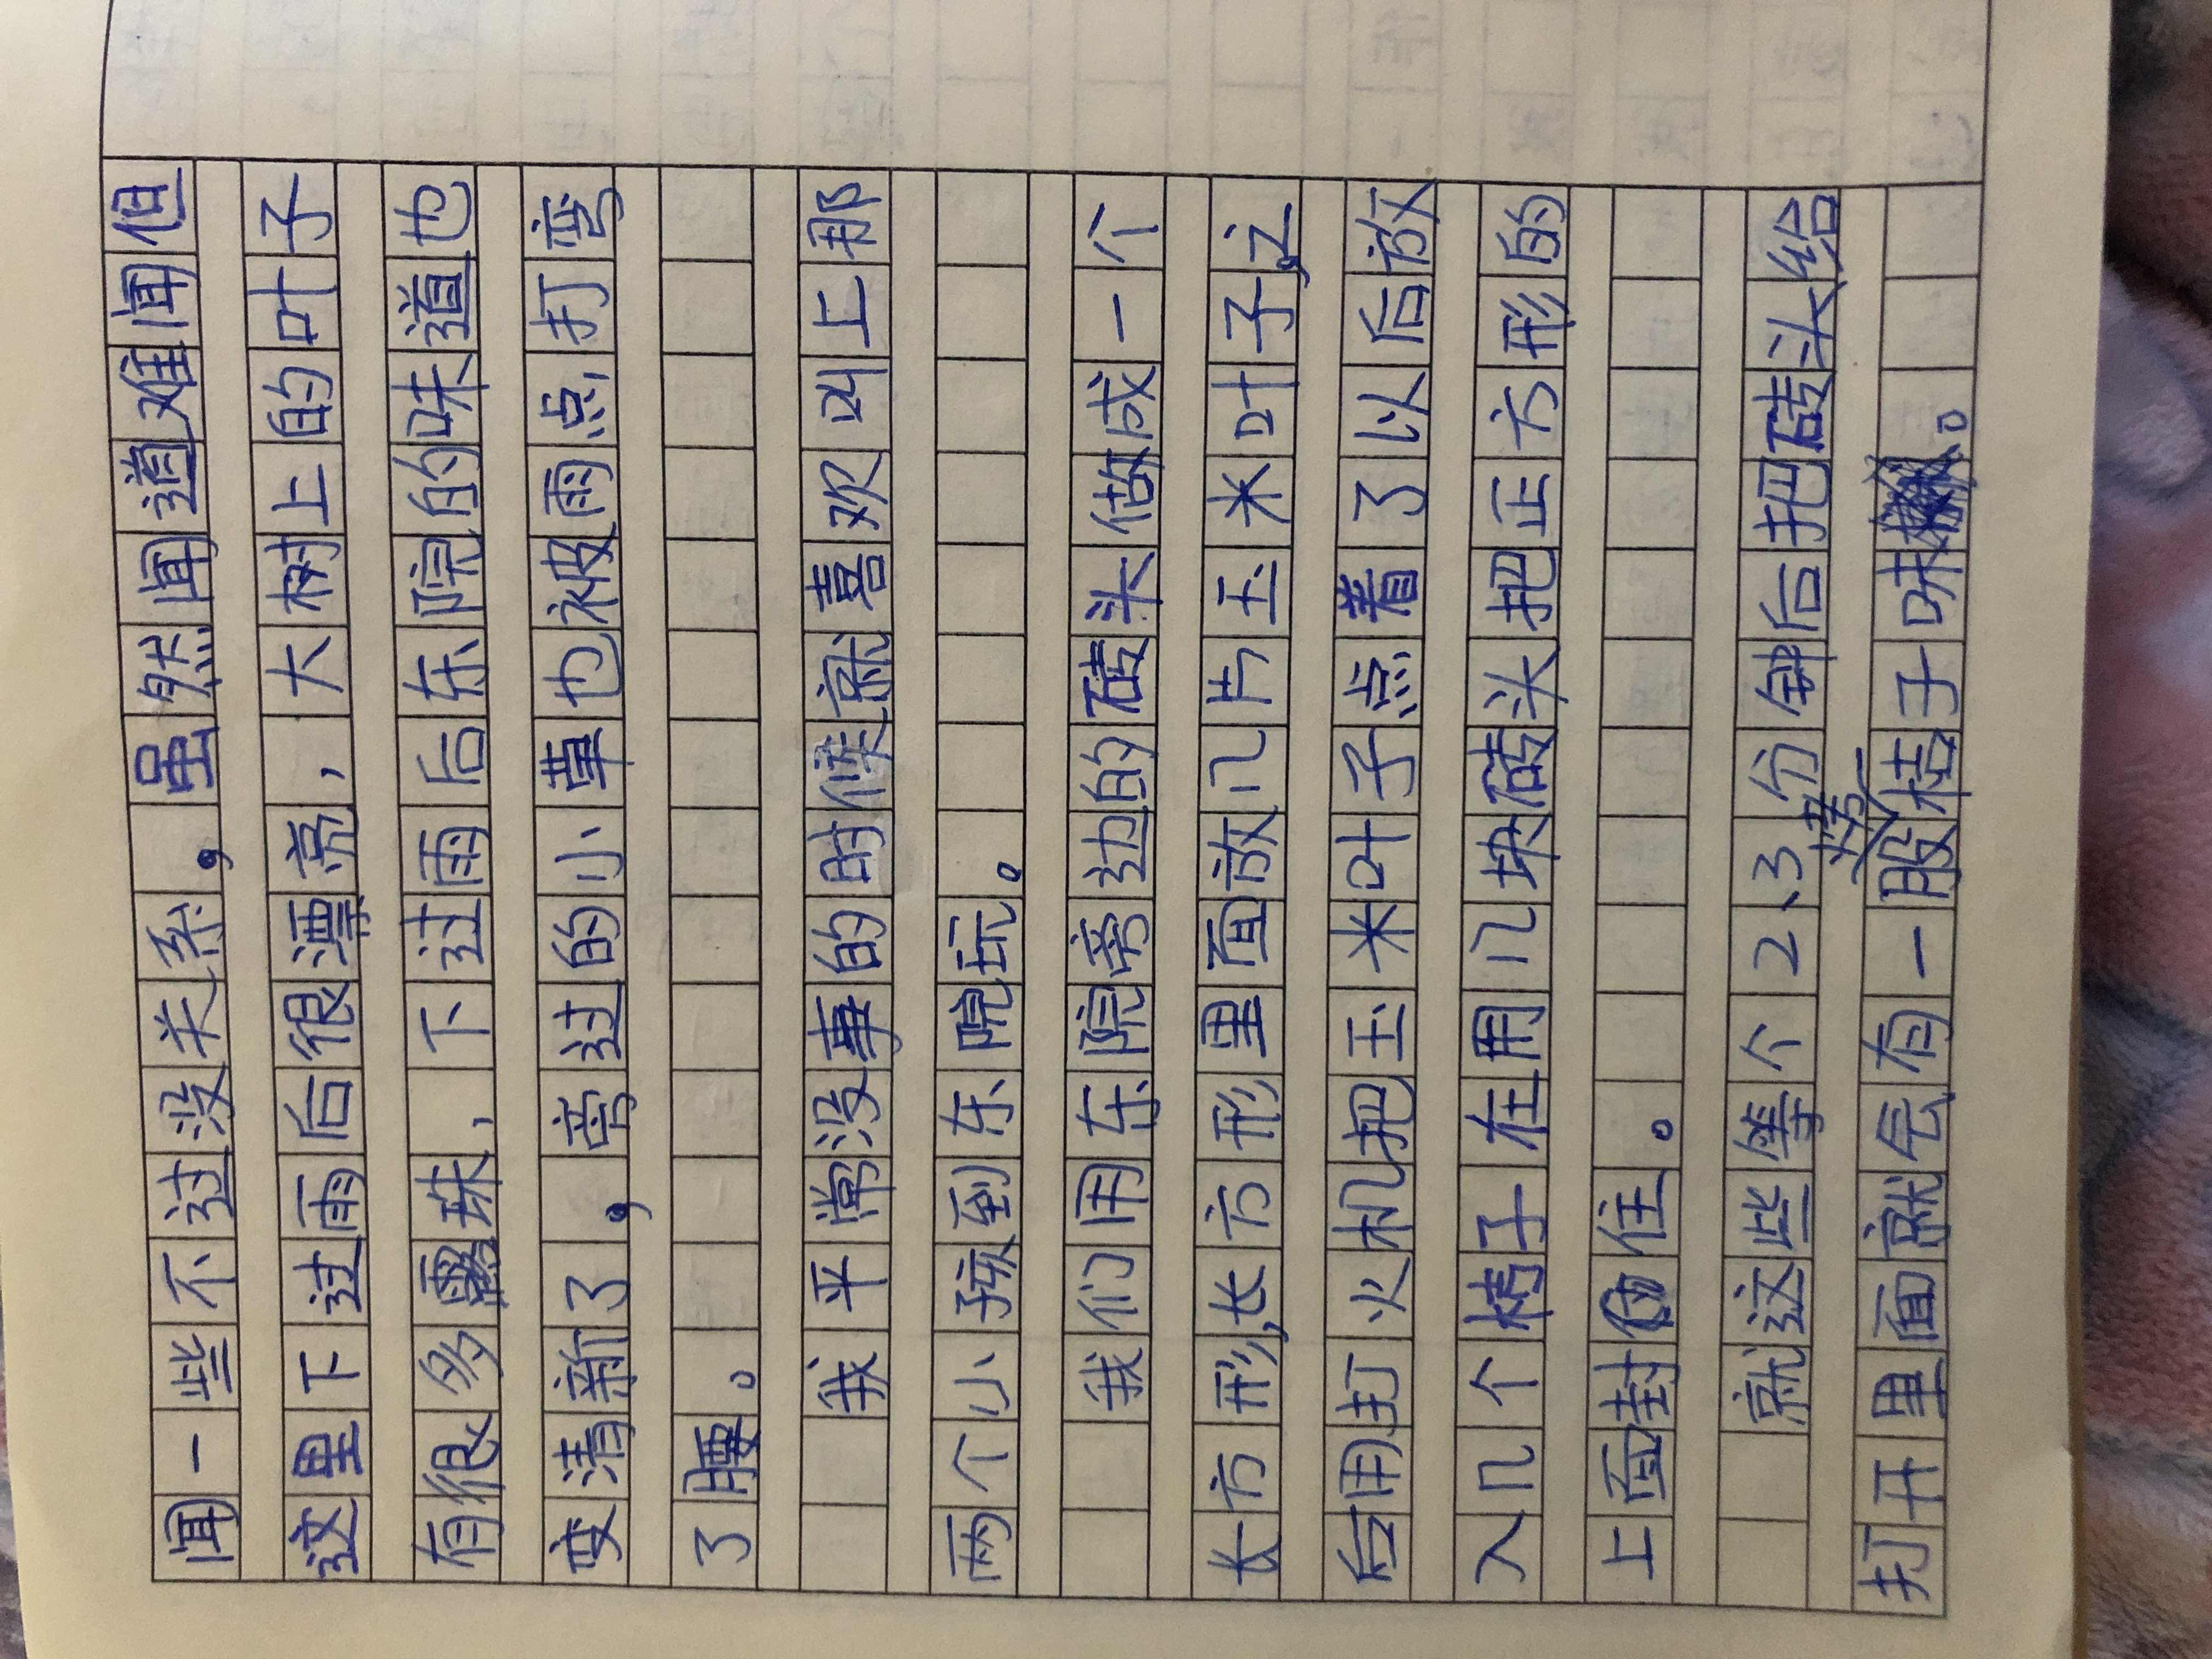 闻一些不过没关系，虽然闻道难闻但
这里下过雨后很漂亮，大树上的叶子
有很多露珠，下过雨后东院的味道也
变清新了，旁过的小草也被雨点打弯
了腰。
我平常没事的时候就喜欢叫上那
两个小孩到东院玩。
我们用东院旁边的砖头做成一个
长方形，长方形里面放几片玉米叶子，之
后用打火机把玉米叶子点着了以后放
入几个桔子在用几块砖头把正方形的
上面封住。
就这些等个2、3分钟后把砖头给
打开里面就会有一股烤桔子味。